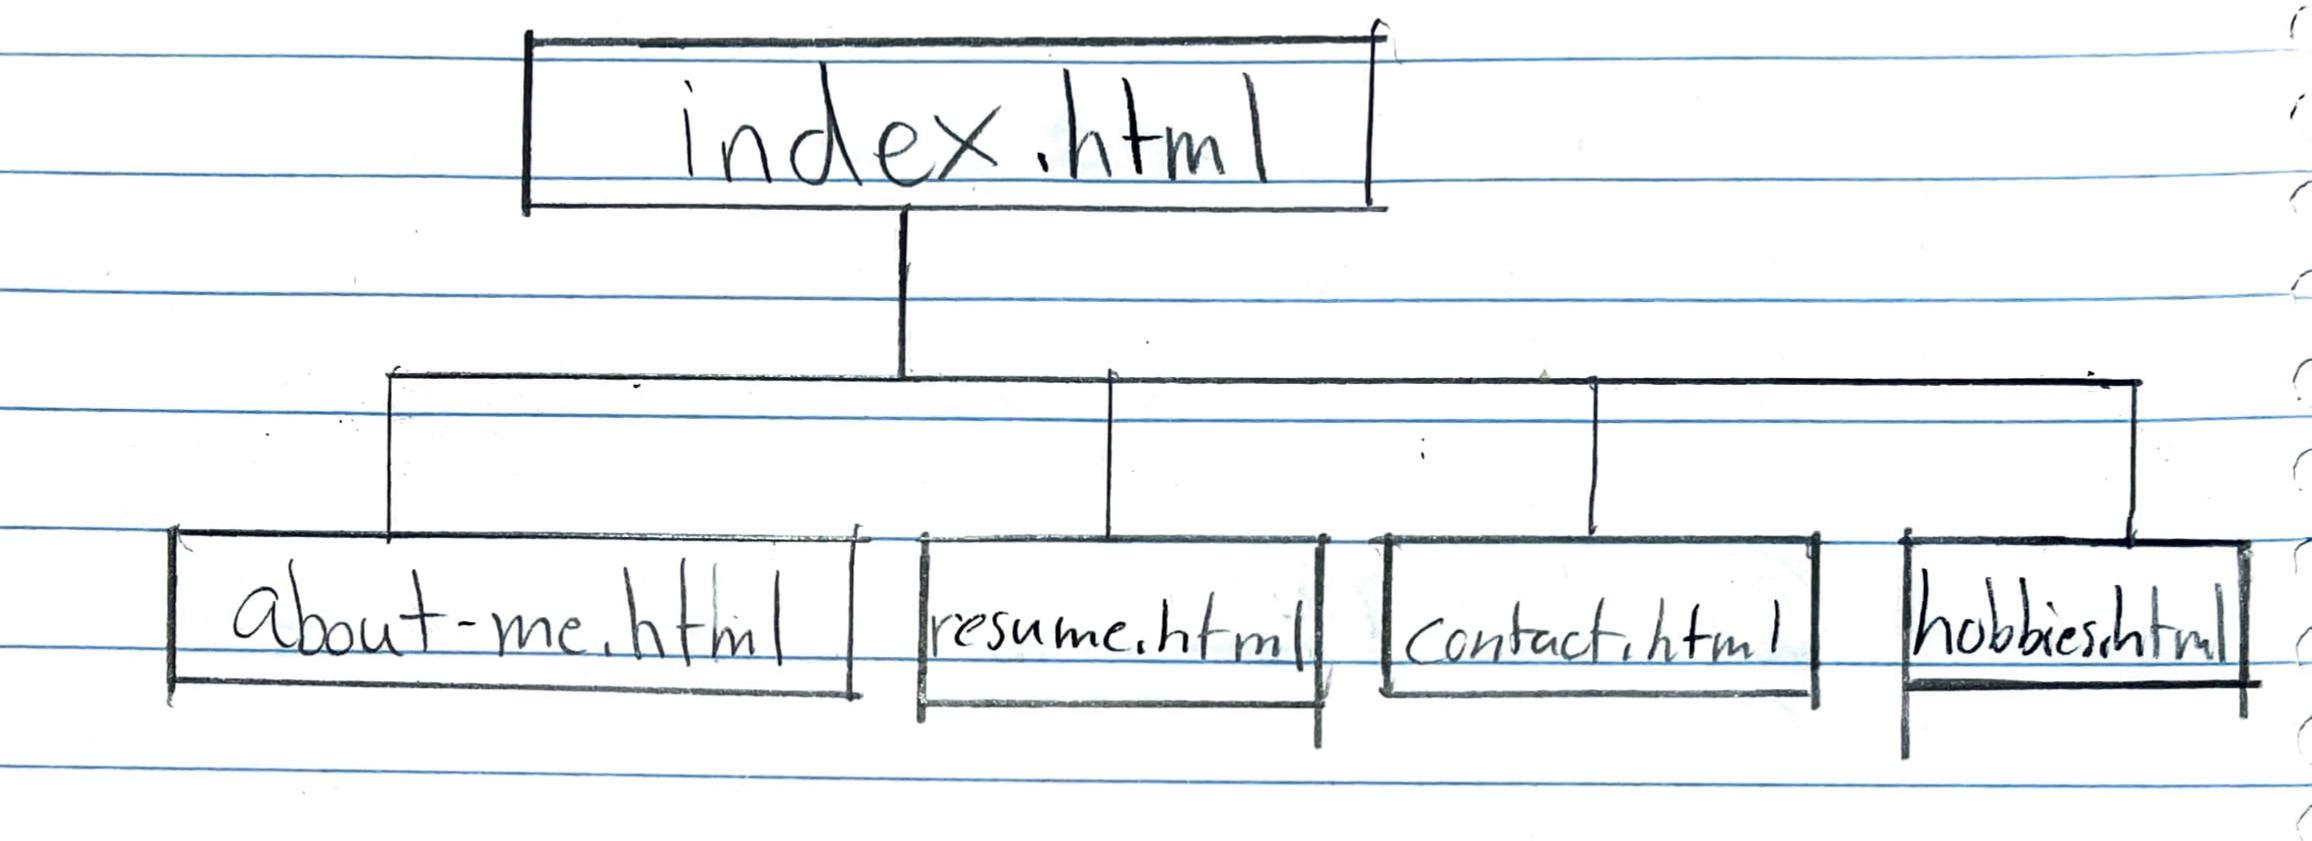 index.html
about-me.html
resume.html
contact.html
hobbies.html